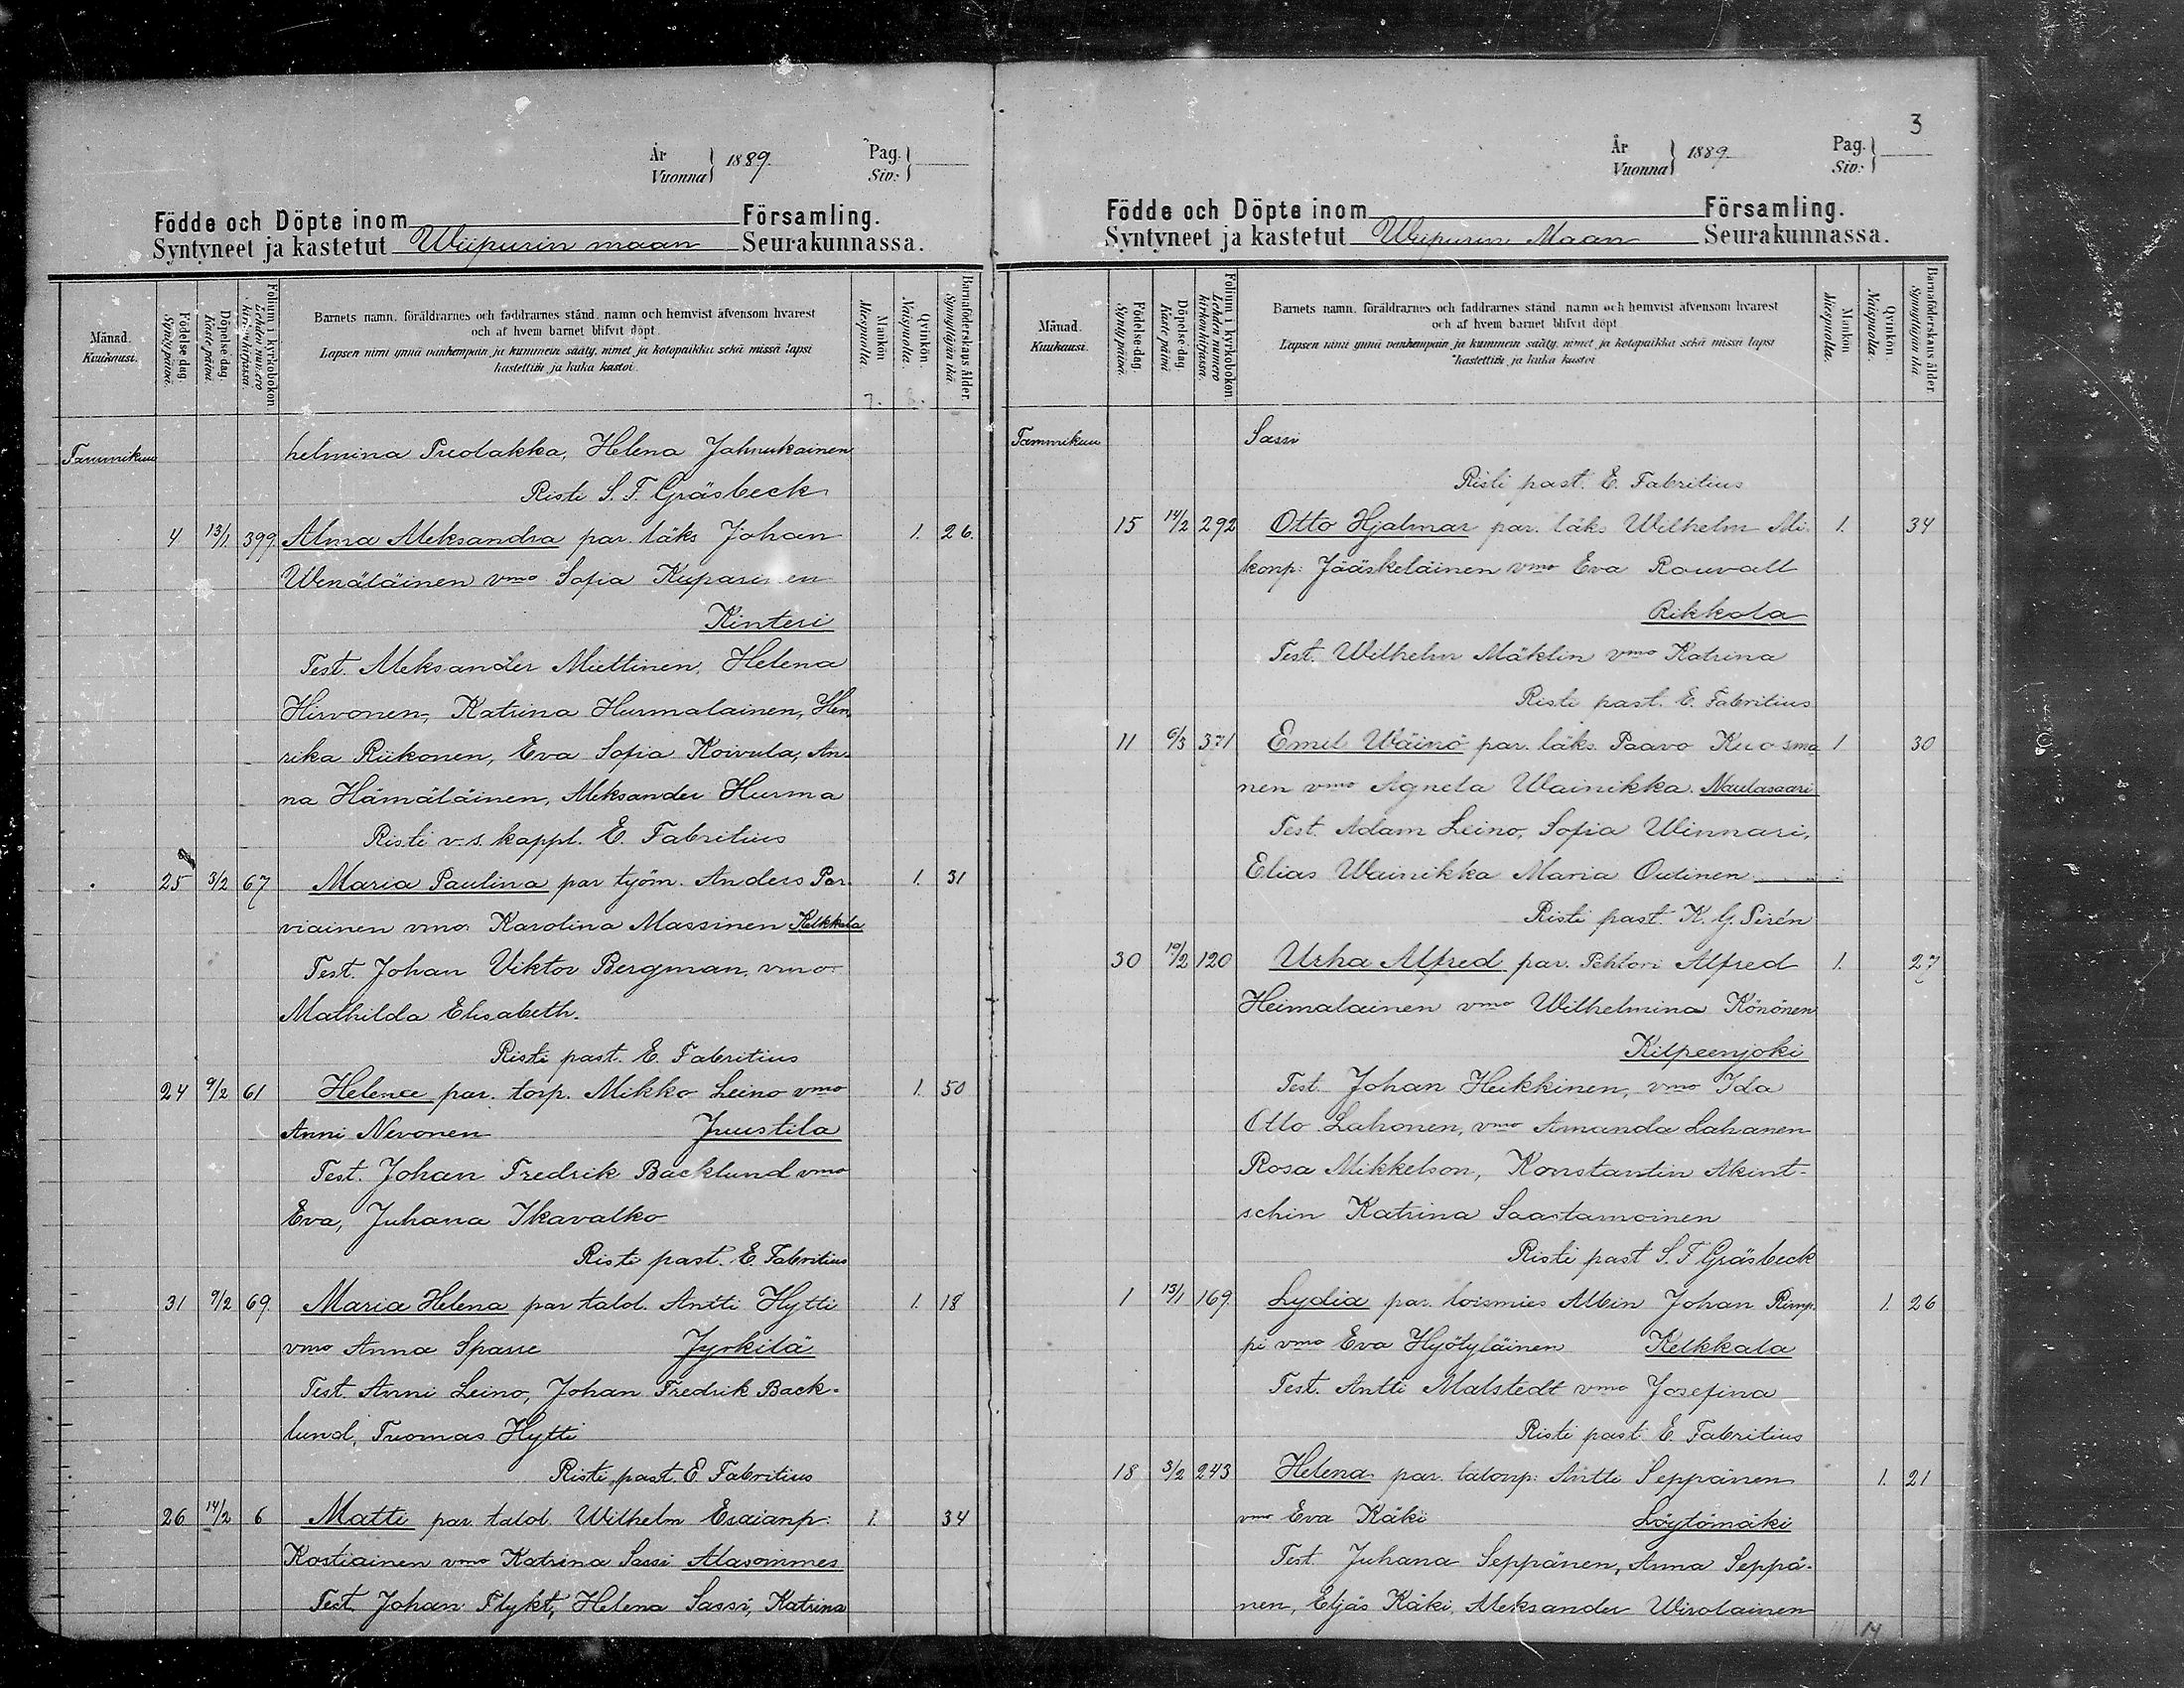 År
Vuonna 1889.
Pag.
Siv:
Födde och Döpte inom Församling.
Syntyneet ja kastetut Wiipurin maan Seurakunnassa.
Månad.
Kuukausi.
Födelse dag.
Syntypäivä.
Döpelse dag.
Kaste päivä.
Folium i kyrkoboken
Lehden numero kirkonkirjassa.
Barnets namn, föräldrarnes och faddrarnes stånd, namn och hemvist äfvensom hvarest
och af hvem barnet blifvit döpt.
Lapsen nimi ynnä vanhempain ja kummein sääty, nimet ja kotopaikka sekä missä lapsi
kastettiin ja kuka kastoi.
Mankön
Miespuolia.
Qvinkön.
Naispuolia.
Barnaföderskans ålder.
Synnyttäjän ikä
7. 8.
Tammikuu helmina Puolakka, Helena Jahnukainen
Risti S. F. Gräsbeck
4 13/1 399 Alma Aleksandra par. läks Johan 1. 26.
Wenäläinen vmo Sofia Kuparinen
Kinteri
Test. Aleksander Miettinen, Helena
Hirvonen, Katrina Hurmalainen, Hen-
rika Riikonen, Eva Sofia Koivula, An-
na Hämäläinen, Aleksander Hurma
Risti v. s. kappl. E. Fabritius
25 3/2 67 Maria Paulina par työm. Anders Par- 1. 31
viainen vmo Karolina Massinen Kelkkala
Test. Johan Viktor Bergman, vmo
Mathilda Elisabeth.
Risti past. E. Fabritius
24 9/2 61 Helence par. torp. Mikko Leino vmo 1. 50
Anni Nevonen Juustila
Test. Johan Fredrik Backlund vmo
Eva, Juhana Ikavalko
Risti past. E. Fabritius
31 9/2 69 Maria Helena par talol. Antti Hytti 1. 18
vmo Anna Sparre Jyrkilä
Test. Anni Leino, Johan Fredrik Back-
lund, Tuomas Hytti
Risti past. E Fabritius
26 14/2 6 Matti par. talol. Wilhelm Esaianp: 1. 34
Kostiainen vmo Katrina Sassi Alasommes
Test. Johan Flykt, Helena Sassi, Katrina
3
År
Vuonna 1889
Pag.
Siv:
Födde och Döpte inom Församling.
Syntyneet ja kastetut Wiipurin Maan Seurakunnassa.
Månad.
Kuukausi.
Födelse dag.
Syntypäivä.
Döpelse dag
Kaste päivä
Folium i kyrkoboken
Lehden numero kirkonkirjassa.
Barnets namn, föräldrarnes och faddrarnes stånd, namn och hemvist äfvensom hvarest
och af hvem barnet blifvit döpt.
Lapsen nimi ynnä vanhempain ja kummein sääty, nimet ja kotopaikka sekä missä lapsi
kastettiin ja kuka kastoi
Mankön
Miespuolia.
Qvinkön.
Naispuolia.
Barnaföderskans ålder.
Synnyttäjän ikä
Tammikuu Sassi
Risti past. E. Fabritius
15 14/2 292 Otto Hjalmar par. läks Wilhelm Mi- 1. 34
konp: Jääskeläinen vmo Eva Rouvall
Rikkola
Test. Wilhelm Mäklin vmo Katrina
Risti past. E. Fabritius
11 6/3 371 Emil Wäinö par. läks. Paavo Kuosma 1 30
nen vmo Agneta Wainikka. Naulasaari
Test. Adam Leino, Sofia Winnari,
Elias Wainikka Maria Outinen
Risti past. K. G. Sirén
30 10/2 120 Urha Alfred par. Pehtori Alfred 1. 27
Heimalainen vmo Wilhelmina Könönen
Kilpeenjoki
Test. Johan Heikkinen, vmo Ida
Otto Lahonen, vmo Amanda Lahanen
Rosa Mikkelson, Konstantin Akint-
schin Katrina Saastamoinen
Risti past S. F Gräsbeck
1 13/1 169 Lydia par. loismies Albin Johan Rimp- 1. 26
pi vmo Eva Hyötyläinen Kelkkala
Test. Antti Malstedt vmo Josefina
Risti past E. Fabritius
18 3/2 243 Helena par. talonp: Antti Seppänen 1. 21
vmo Eva Käki Löytömäki
Test Juhana Seppänen, Anna Seppä-
nen, Eljäs Käki, Aleksander Wirolainen
14